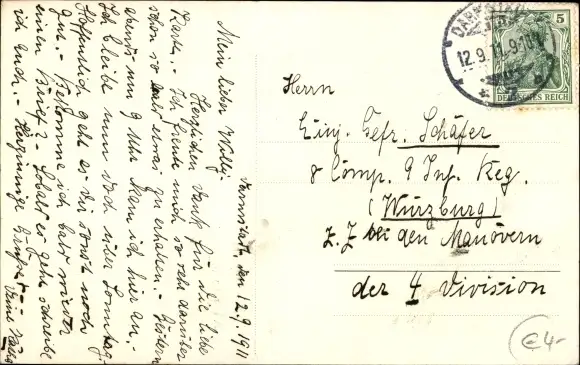 Darmstadt, den 12.9.1911
Mein lieber Willy!
Herzlichen Dank für die liebe
Karte.- Ich freute mich so sehr darüber
schon so bald etwas zu erhalten.- Gestern
abend um 9 Uhr kam ich hier an.-
Ich bleibe nun doch über Sonntag.-
Hoffentlich geht es dir sonst noch
gut.- Bekomme ich bald wieder
einen Brief?- Sobald es geht schreibe
ich auch.- Herzinnige Grüße
Deine
DARMSTADT
12.9.11.9-10V.
* 2
5
DEUTSCHES REICH
Herrn
Einj. Gefr. Schäfer
8 Comp. 9 Inf. Reg.
(Würzburg)
z. Z. bei den Manövern
der 4 Division
€4-